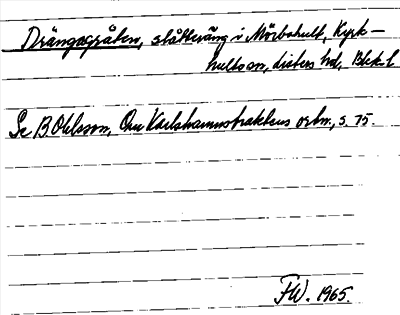 Drängagråten, slåtteräng i Mörbohult, Kyrk-
hults sn, Listers hd, Blek. l
Se B Ohlsson, Om Karlshamnstraktens ortn., s. 75.
FW. 1965.